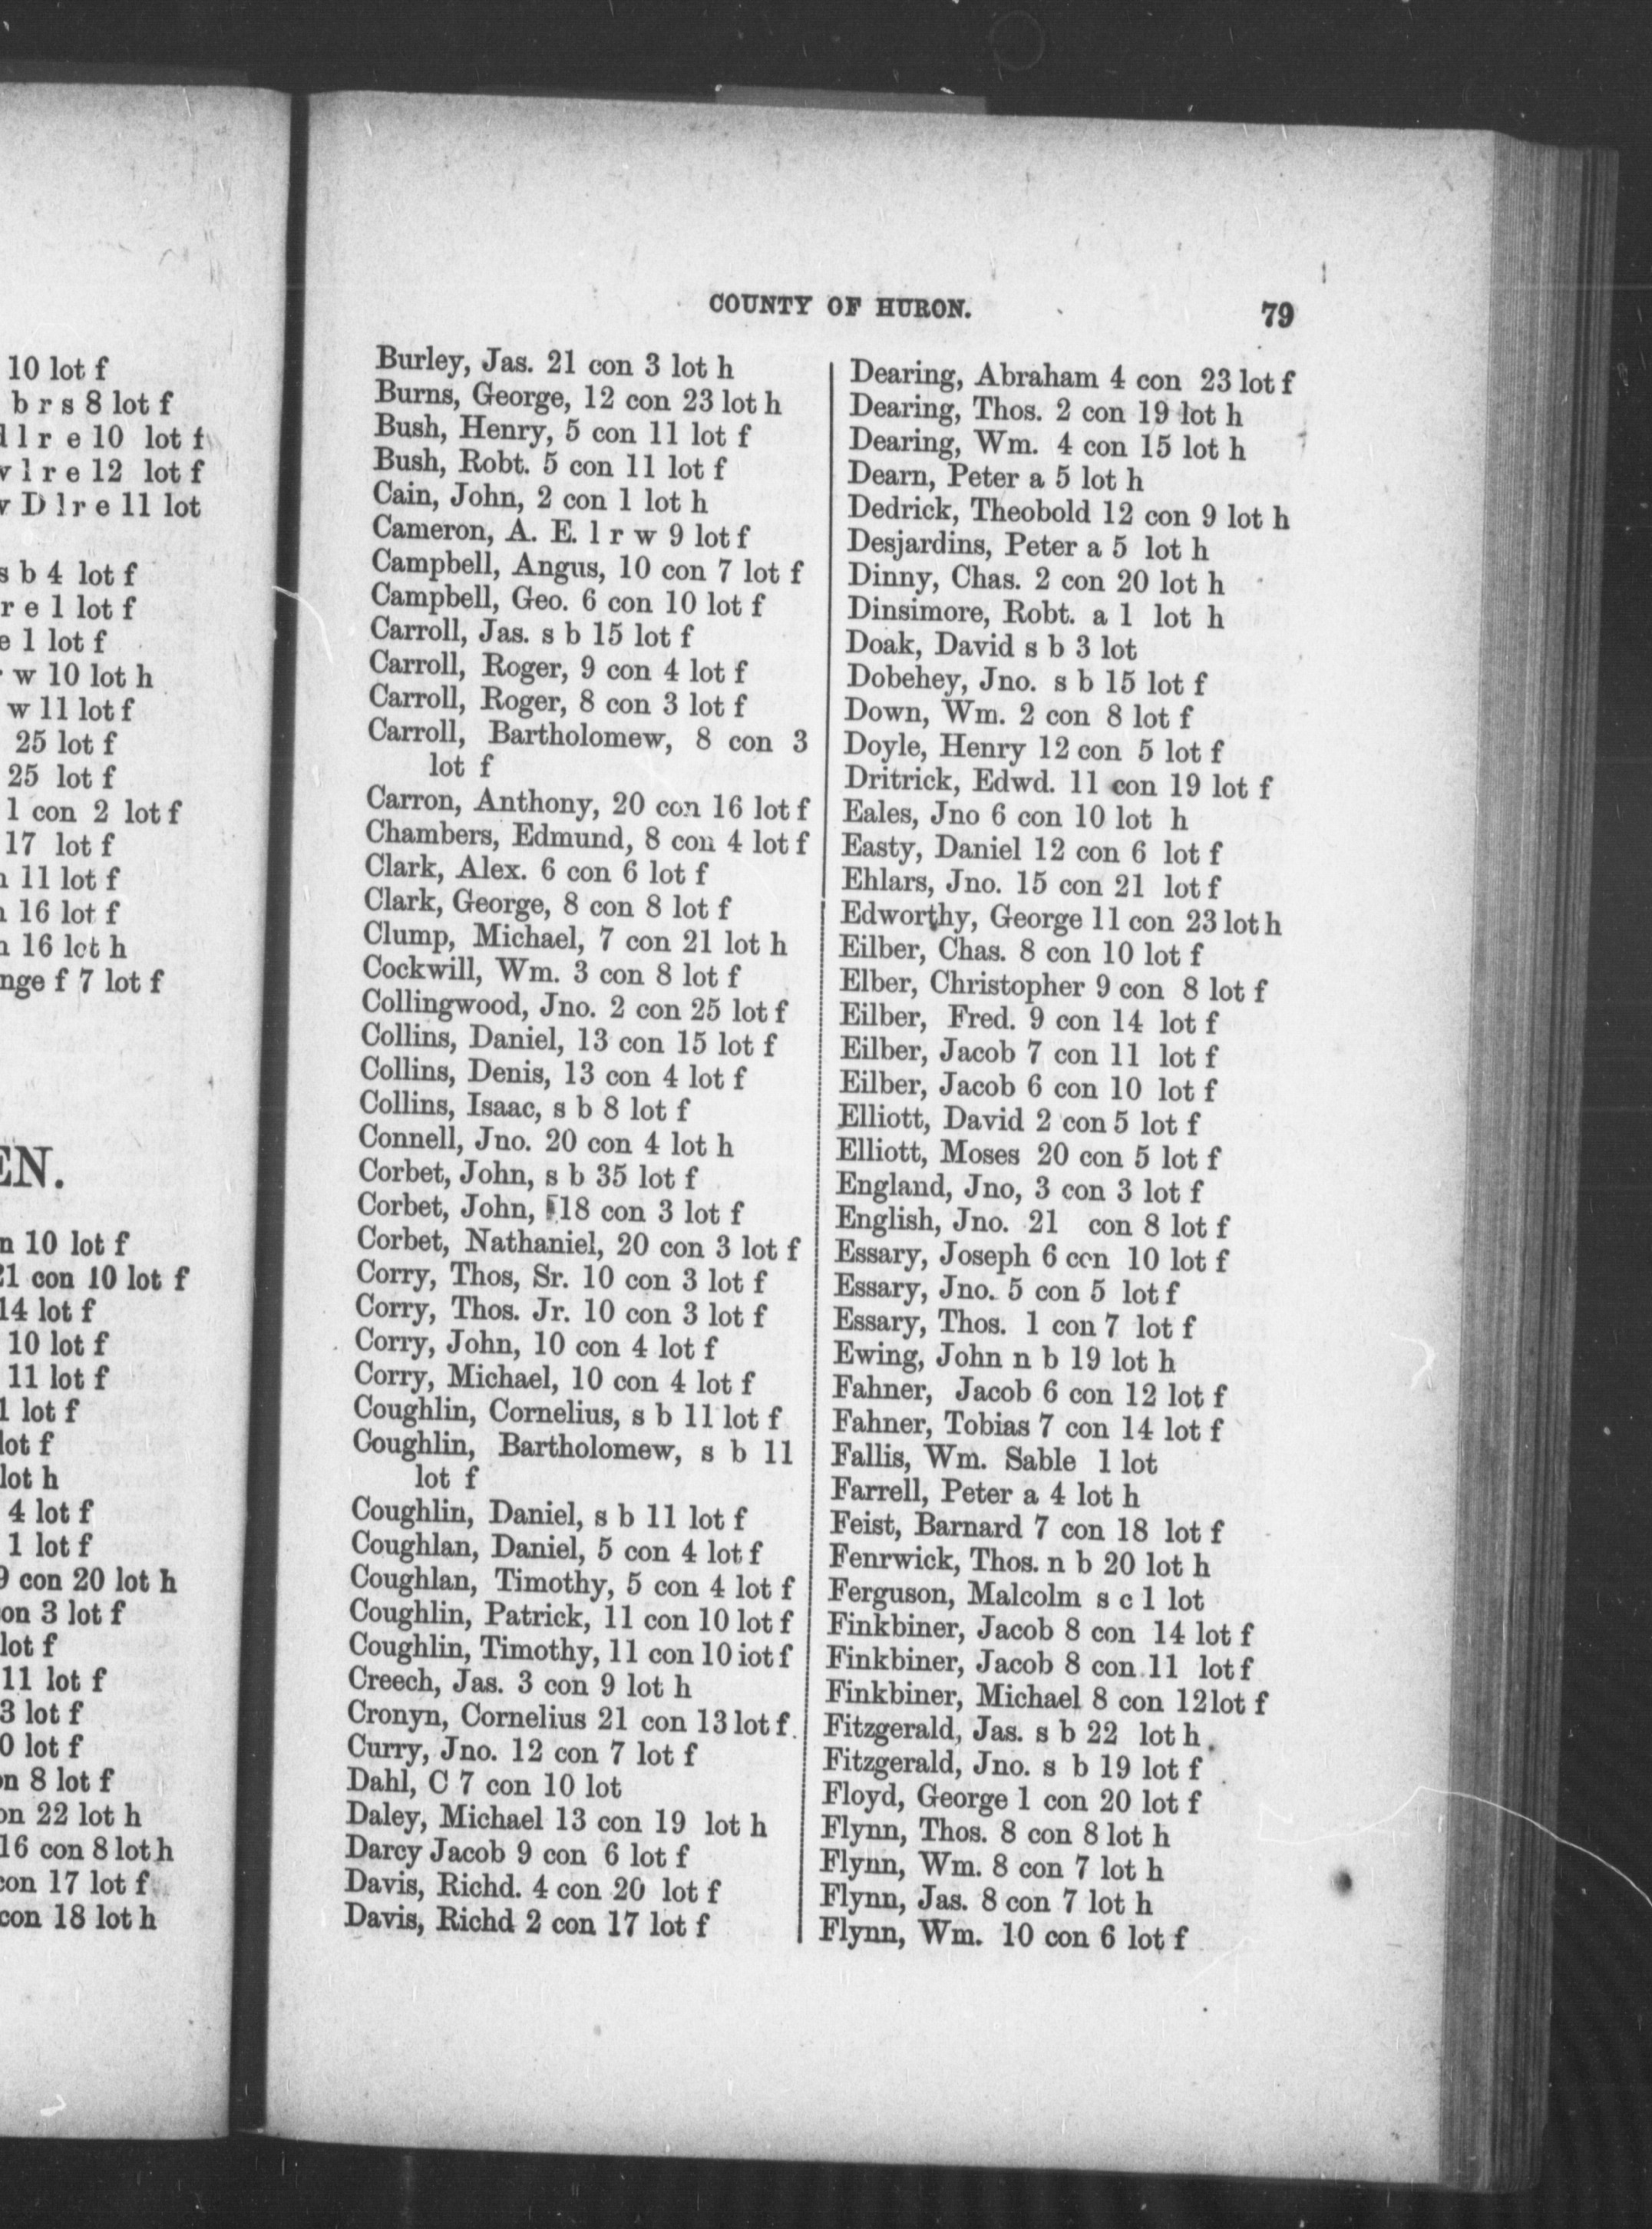 10 lot f
b r s 8 lot f
l r e 10 lot f
l r e 12 lot f
D l r e 11 lot
s b 4 lot f
r e 1 lot f
e 1 lot f
w 10 lot h
w 11 lot f
25 lot f
25 lot f
1 con 2 lot f
17 lot f
11 lot f
16 lot f
16 lot h
nge f 7 lot f
EN.
n 10 lot f
21 con 10 lot f
14 lot f
10 lot f
11 lot f
1 lot f
lot f
lot h
4 lot f
1 lot f
9 con 20 lot h
on 3 lot f
lot f
11 lot f
3 lot f
0 lot f
on 8 lot f
on 22 lot h
16 con 8 lot h
con 17 lot f
con 18 lot h
COUNTY OF HURON.
79
Burley, Jas. 21 con 3 lot h
Burns, George, 12 con 23 lot h
Bush, Henry, 5 con 11 lot f
Bush, Robt. 5 con 11 lot f
Cain, John, 2 con 1 lot h
Cameron, A. E. l r w 9 lot f
Campbell, Angus, 10 con 7 lot f
Campbell, Geo. 6 con 10 lot f
Carroll, Jas. s b 15 lot f
Carroll, Roger, 9 con 4 lot f
Carroll, Roger, 8 con 3 lot f
Carroll, Bartholomew, 8 con 3
lot f
Carron, Anthony, 20 con 16 lot f
Chambers, Edmund, 8 con 4 lot f
Clark, Alex. 6 con 6 lot f
Clark, George, 8 con 8 lot f
Clump, Michael, 7 con 21 lot h
Cockwill, Wm. 3 con 8 lot f
Collingwood, Jno. 2 con 25 lot f
Collins, Daniel, 13 con 15 lot f
Collins, Denis, 13 con 4 lot f
Collins, Isaac, s b 8 lot f
Connell, Jno. 20 con 4 lot h
Corbet, John, s b 35 lot f
Corbet, John, 18 con 3 lot f
Corbet, Nathaniel, 20 con 3 lot f
Corry, Thos, Sr. 10 con 3 lot f
Corry, Thos. Jr. 10 con 3 lot f
Corry, John, 10 con 4 lot f
Corry, Michael, 10 con 4 lot f
Coughlin, Cornelius, s b 11 lot f
Coughlin, Bartholomew, s b 11
lot f
Coughlin, Daniel, s b 11 lot f
Coughlan, Daniel, 5 con 4 lot f
Coughlan, Timothy, 5 con 4 lot f
Coughlin, Patrick, 11 con 10 lot f
Coughlin, Timothy, 11 con 10 iot f
Creech, Jas. 3 con 9 lot h
Cronyn, Cornelius 21 con 13 lot f.
Curry, Jno. 12 con 7 lot f
Dahl, C 7 con 10 lot
Daley, Michael 13 con 19 lot h
Darcy Jacob 9 con 6 lot f
Davis, Richd. 4 con 20 lot f
Davis, Richd 2 con 17 lot f
Dearing, Abraham 4 con 23 lot f
Dearing, Thos. 2 con 19 lot h
Dearing, Wm. 4 con 15 lot h
Dearn, Peter a 5 lot h
Dedrick, Theobold 12 con 9 lot h
Desjardins, Peter a 5 lot h
Dinny, Chas. 2 con 20 lot h
Dinsimore, Robt. a 1 lot h
Doak, David s b 3 lot
Dobehey, Jno. s b 15 lot f
Down, Wm. 2 con 8 lot f
Doyle, Henry 12 con 5 lot f
Dritrick, Edwd. 11 con 19 lot f
Eales, Jno 6 con 10 lot h
Easty, Daniel 12 con 6 lot f
Ehlars, Jno. 15 con 21 lot f
Edworthy, George 11 con 23 lot h
Eilber, Chas. 8 con 10 lot f
Elber, Christopher 9 con 8 lot f
Eilber, Fred. 9 con 14 lot f
Eilber, Jacob 7 con 11 lot f
Eilber, Jacob 6 con 10 lot f
Elliott, David 2 con 5 lot f
Elliott, Moses 20 con 5 lot f
England, Jno, 3 con 3 lot f
English, Jno. 21 con 8 lot f
Essary, Joseph 6 con 10 lot f
Essary, Jno. 5 con 5 lot f
Essary, Thos. 1 con 7 lot f
Ewing, John n b 19 lot h
Fahner, Jacob 6 con 12 lot f
Fahner, Tobias 7 con 14 lot f
Fallis, Wm. Sable 1 lot
Farrell, Peter a 4 lot h
Feist, Barnard 7 con 18 lot f
Fenrwick, Thos. n b 20 lot h
Ferguson, Malcolm s c 1 lot
Finkbiner, Jacob 8 con 14 lot f
Finkbiner, Jacob 8 con 11 lot f
Finkbiner, Michael 8 con 12 lot f
Fitzgerald, Jas. s b 22 lot h.
Fitzgerald, Jno. s b 19 lot f
Floyd, George 1 con 20 lot f
Flynn, Thos. 8 con 8 lot h
Flynn, Wm. 8 con 7 lot h
Flynn, Jas. 8 con 7 lot h
Flynn, Wm. 10 con 6 lot f